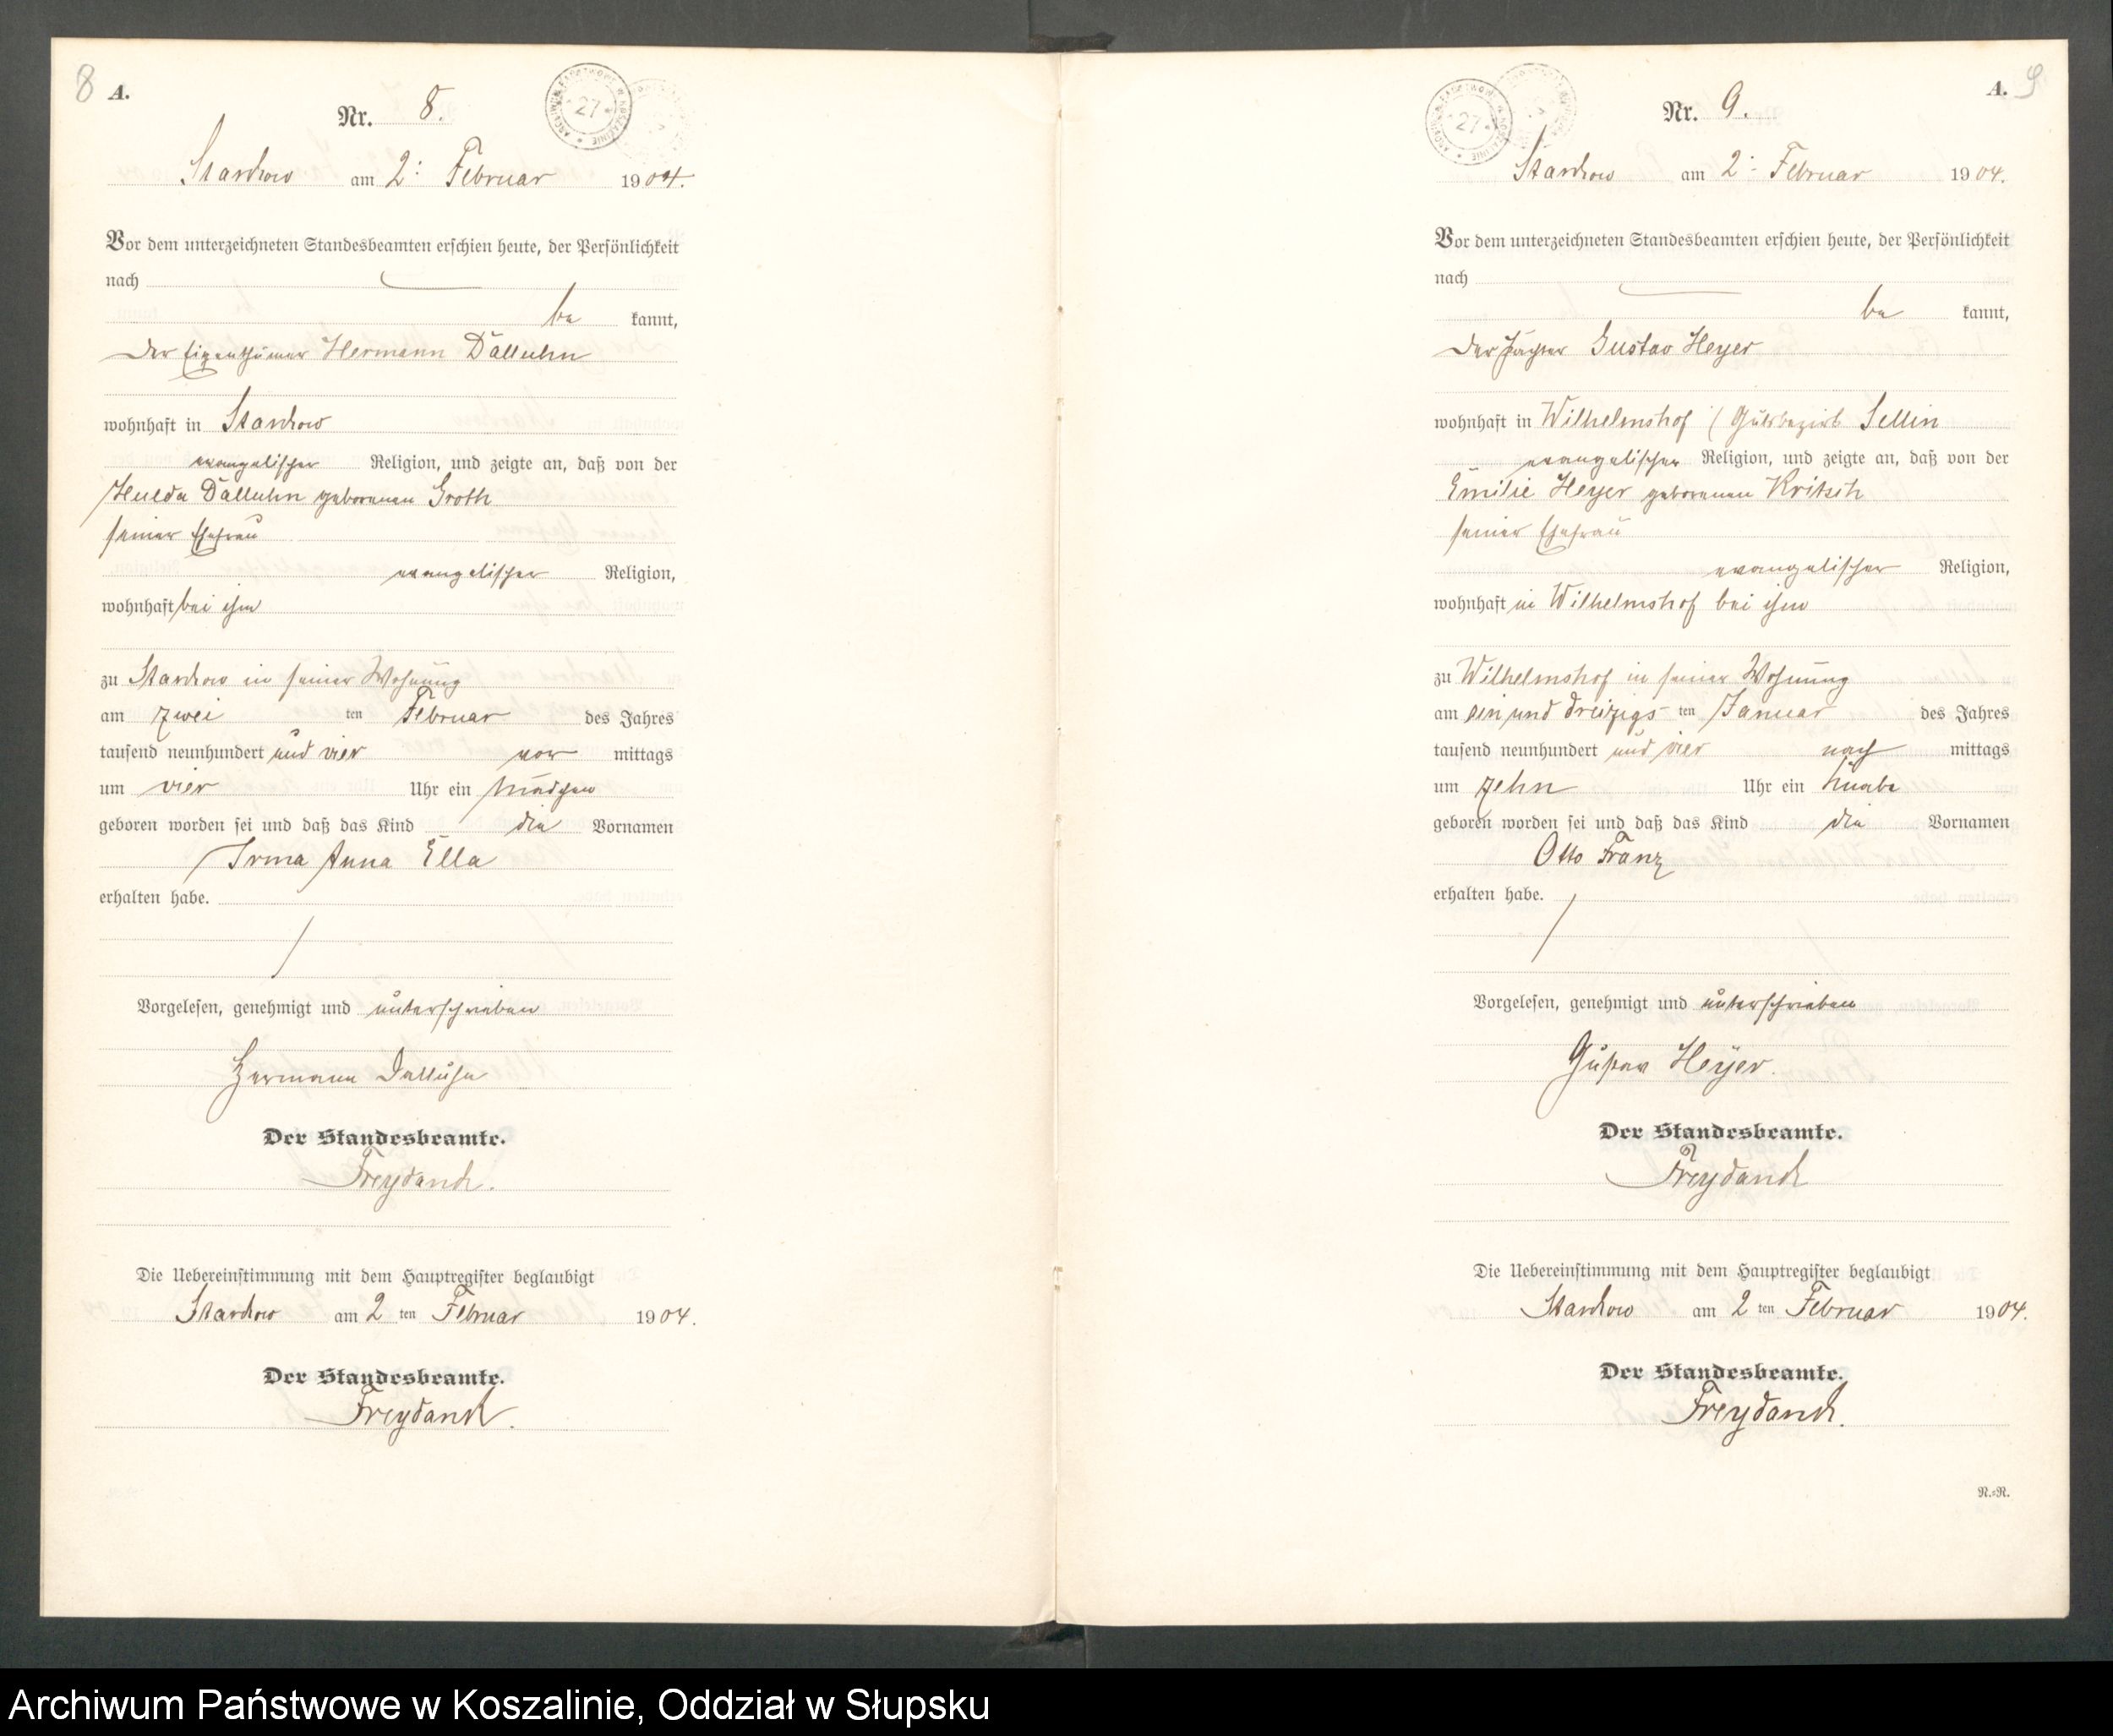 8 A.
Nr. 8.
ARCHIWUM PAŃSTWOWE W KOSZALINIE * 27 *
Starkow am 2. Februar 1904.
Vor dem unterzeichneten Standesbeamten erschien heute, der Persönlichkeit
nach
be kannt,
der Eigenthümer Hermann Dalluhn
wohnhaft in Starkow
evangelischer Religion, und zeigte an, daß von der
Hulda Dalluhn geborenen Groth
seiner Ehefrau
evangelischer Religion,
wohnhaft bei ihm
zu Starkow in seiner Wohnung
am zwei ten Februar des Jahres
tausend neunhundert und vier vor mittags
um vier Uhr ein Mädchen
geboren worden sei und daß das Kind die Vornamen
Irma Anna Ella
erhalten habe.
Vorgelesen, genehmigt und unterschrieben
Hermann Dalluhn
Der Standesbeamte.
Freydanck.
Die Uebereinstimmung mit dem Hauptregister beglaubigt
Starkow am 2 ten Februar 1904.
Der Standesbeamte.
Freydanck.
A. 9
Nr. 9.
ARCHIWUM PAŃSTWOWE W KOSZALINIE * 27 *
Starkow am 2. Februar 1904.
Vor dem unterzeichneten Standesbeamten erschien heute, der Persönlichkeit
nach
be kannt,
der Pächter Gustav Heyer
wohnhaft in Wilhelmshof (Gutsbezirk Sellin
evangelischer Religion, und zeigte an, daß von der
Emilie Heyer geborenen Kritsch
seiner Ehefrau
evangelischer Religion,
wohnhaft in Wilhelmshof bei ihm
zu Wilhelmshof in seiner Wohnung
am ein und dreizigs ten Januar des Jahres
tausend neunhundert und vier nach mittags
um zehn Uhr ein Knabe
geboren worden sei und daß das Kind die Vornamen
Otto Franz
erhalten habe.
Vorgelesen, genehmigt und unterschrieben
Gustav Heyer.
Der Standesbeamte.
Freydanck
Die Uebereinstimmung mit dem Hauptregister beglaubigt
Starkow am 2 ten Februar 1904.
Der Standesbeamte.
Freydanck.
R.-R.
Archiwum Państwowe w Koszalinie, Oddział w Słupsku